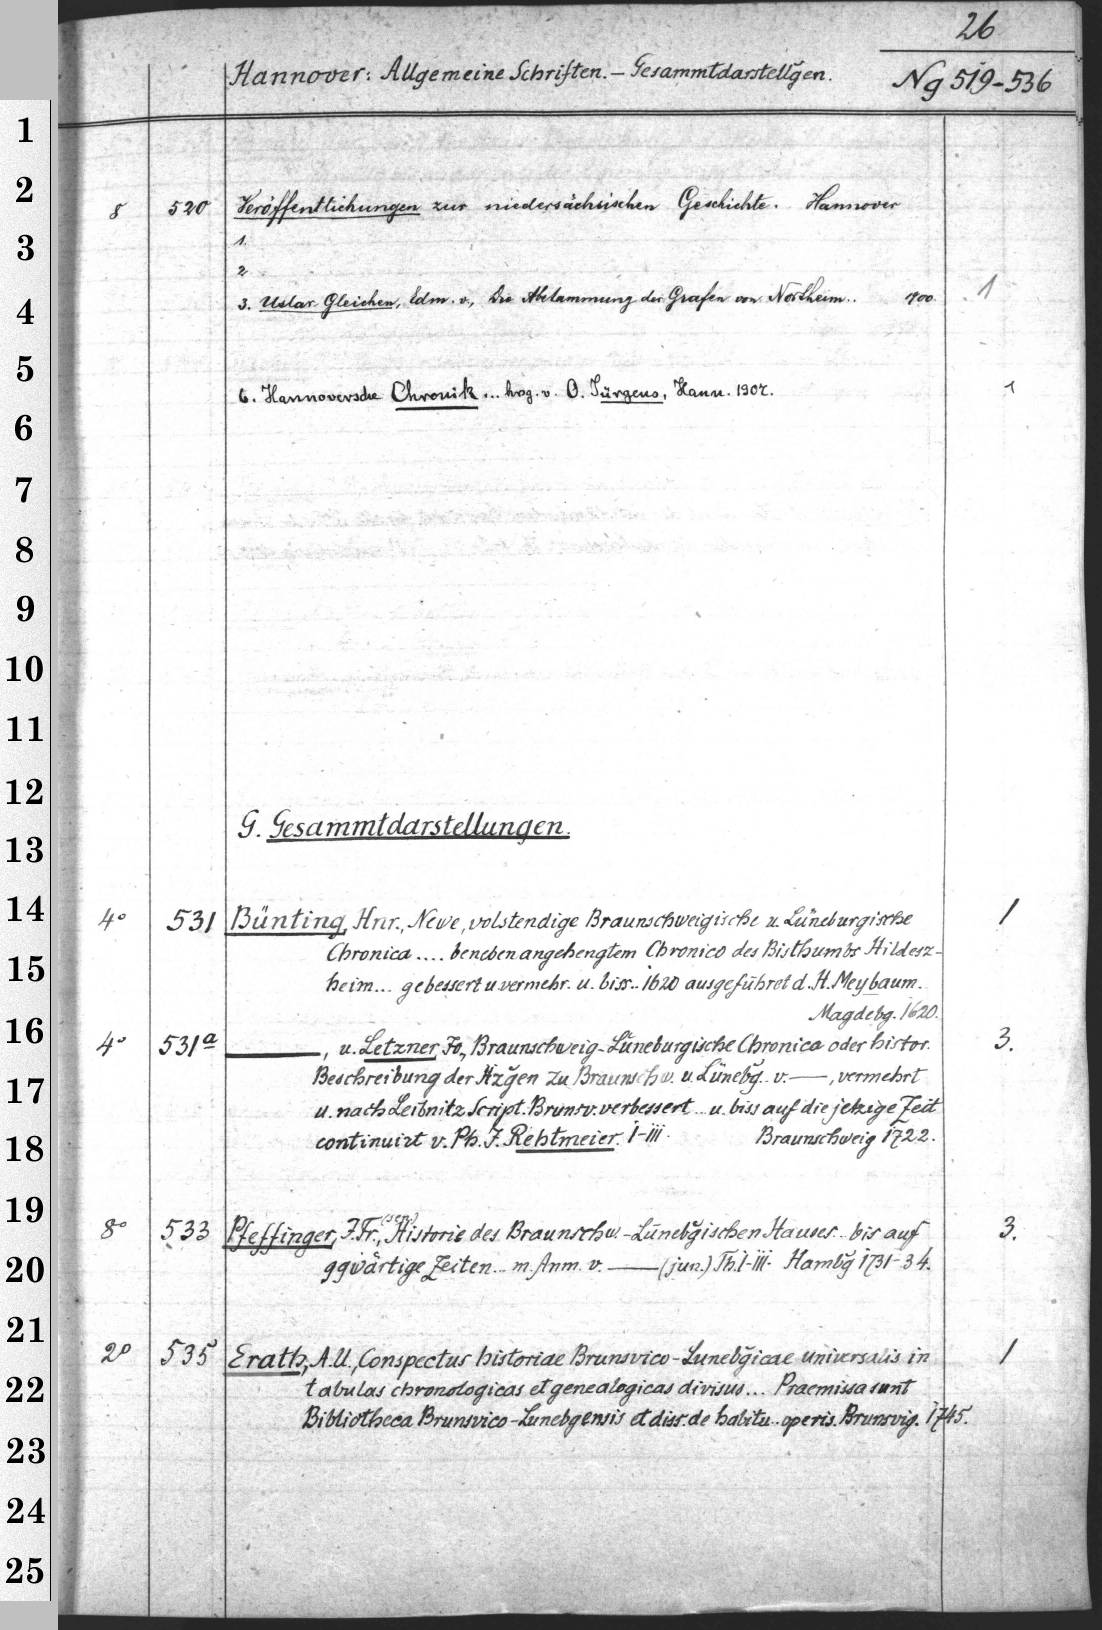 26
Hannover: Allgemeine Schriften. – Gesammtdarstellg̃en. Ng 519-536
1
2
3
4
5
6
7
8
9
10
11
12
13
14
15
16
17
18
19
20
21
22
23
24
25
8 520 Veröffentlichungen zur niedersächsischen Geschichte. Hannover
1.
2.
3. Uslar Gleichen, Edm. v., Die Abstammung der Grafen von Northeim.. 900. 1
6. Hannoversche Chronik... hrsg. v. O. Jürgens, Hann. 1907. 1
G. Gesammtdarstellungen.
4° 531 Bünting, Hnr., Newe, volstendige Braunschweigische u. Lüneburgische 1
Chronica .... beneben angehengtem Chronico des Bisthumbs Hildesz-
heim... gebessert u. vermehr. u. biss.. 1620 ausgeführet d. H. Meybaum.
Magdebg. 1620.
4° 531a ———, u. Letzner, Jo., Braunschweig-Lüneburgische Chronica oder histor. 3.
Beschreibung der Hzg̃en zu Braunschw. u. Lünebg̃.. v. ——, vermehrt
u. nach Leibnitz Script. Brunsv. verbessert .. u. biss auf die jetzige Zeit
continuirt v. Ph. J. Rehtmeier. I-III. Braunschweig 1722.
8° 533 Pfeffinger, J. Fr., (sen.) Historie des Braunschw.-Lünebg̃ischen Hauses .. bis auf 3.
ggwärtige Zeiten... m. Anm. v. ——— (jun.) Th. I-III. Hambg̃ 1731-34.
2° 535 Erath, A. U., Conspectus historiae Brunsvico-Lunebg̃icae universalis in 1
tabulas chronologicas et genealogicas divisus... Praemissa sunt
Bibliotheca Brunsvico-Lunebgensis et diss. de habitu .. operis. Brunsvig. 1745.